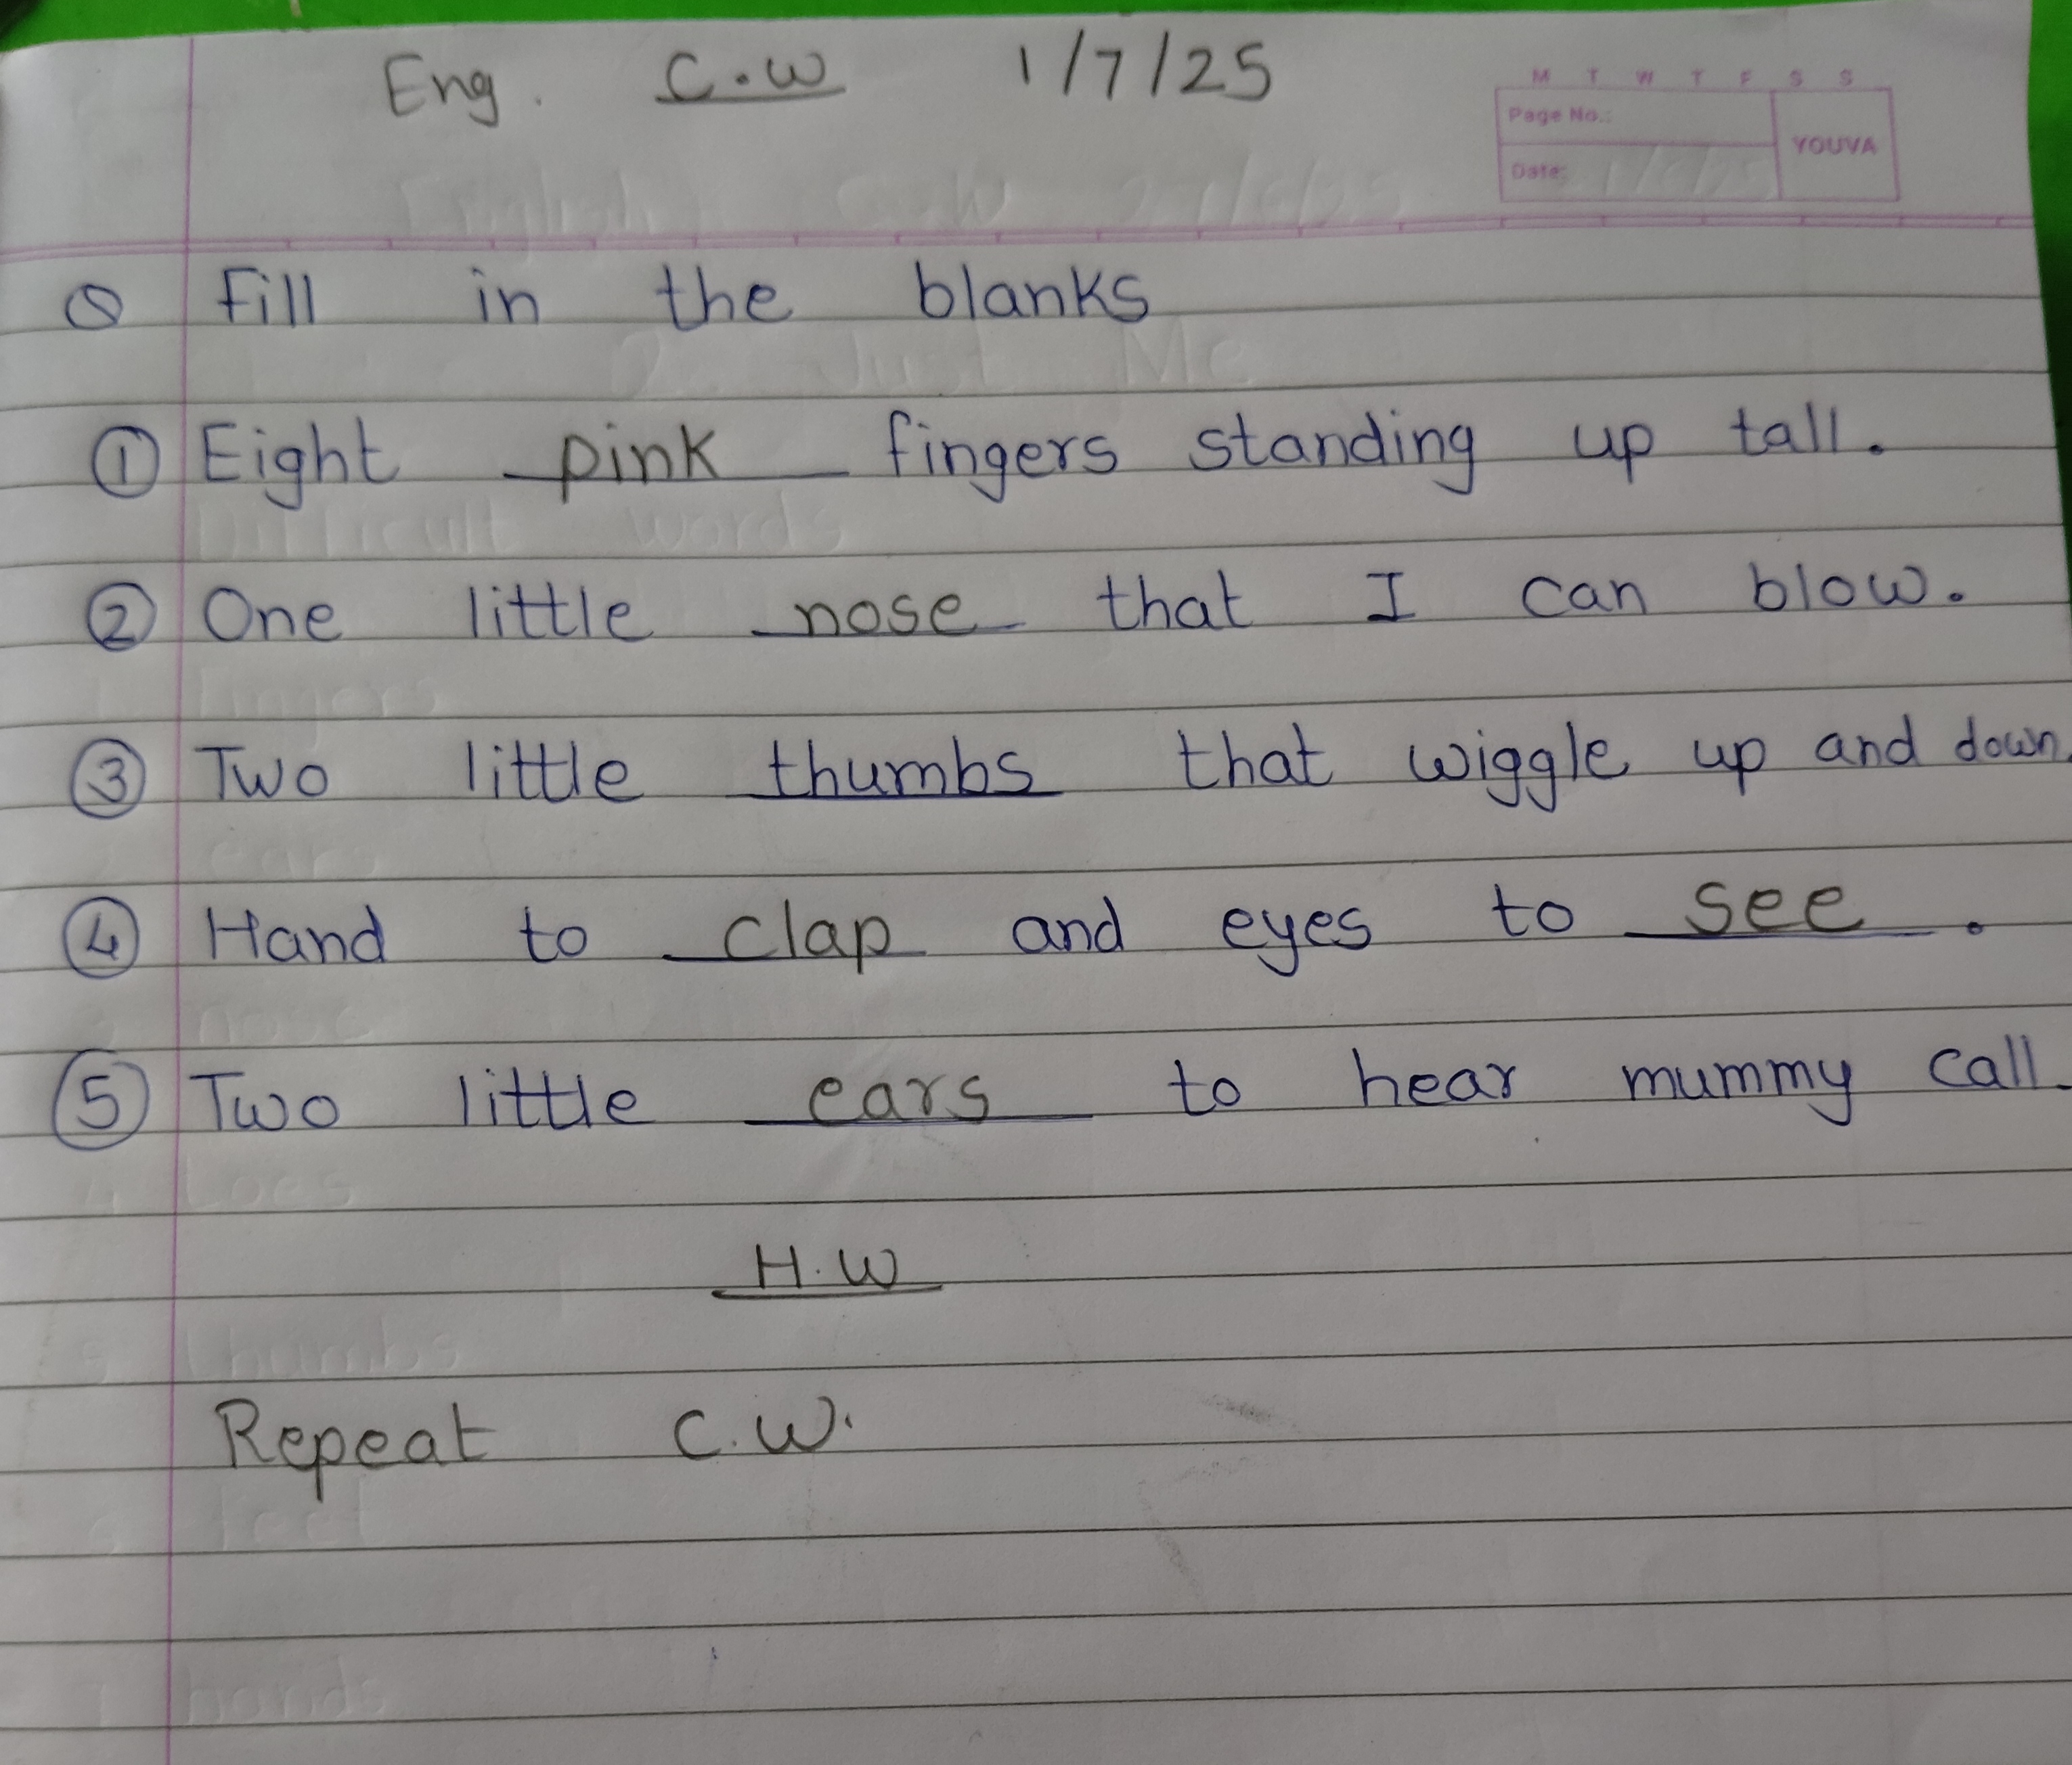 Eng. C.W 1/7/25
M T W T F S S
Page No.:
YOUVA
Date:
Q Fill in the blanks
① Eight pink fingers standing up tall.
② One little nose that I can blow.
③ Two little thumbs that wiggle up and down.
④ Hand to clap and eyes to see.
⑤ Two little ears to hear mummy call.
H.W
Repeat C.W.